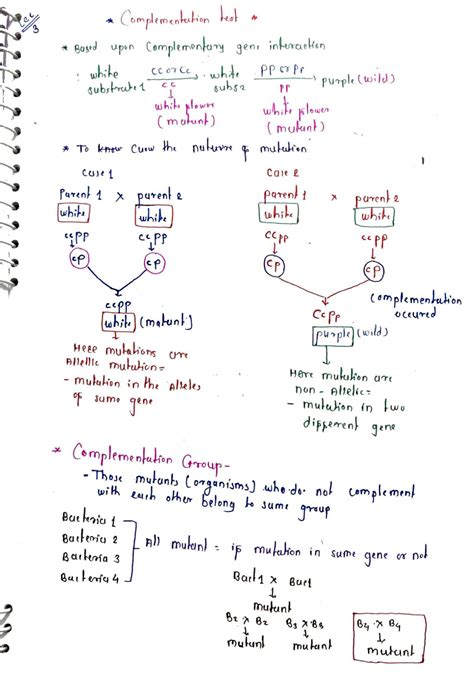 Lec 3
* Complementation test *
* Based upon Complementary gene interaction
: white substrate 1 CC or Cc white subs2 PP or Pp purple (wild)
cc pp
white flower (mutant) white flower (mutant)
* To know the nature of mutation
Case 1
Parent 1 x parent 2
white white
ccPP ccPP
cP cP
ccPP
white (mutant)
Here mutations are
Allelic mutation=
- mutation in the Alleles
of same gene
Case 2
parent 1 x parent 2
white white
CCpp ccPP
Cp cP
Complementation
occured
CcPp
purple (wild)
Here mutation are
non-Allelic=
- mutation in two
different gene
* Complementation Group-
- Those mutants (organisms) who do not complement
with each other belong to same group
Bacteria 1
Bacteria 2
Bacteria 3
Bacteria 4
All mutant = if mutation in same gene or not
Bact 1 x Bact
mutant
B2 x B2 B3 x B3 B4 x B4
mutant mutant mutant